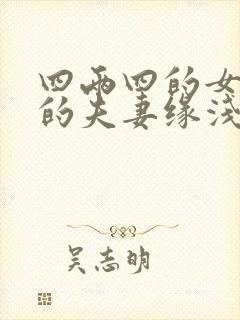 四两四的女
的夫妻缘浅
吴志明